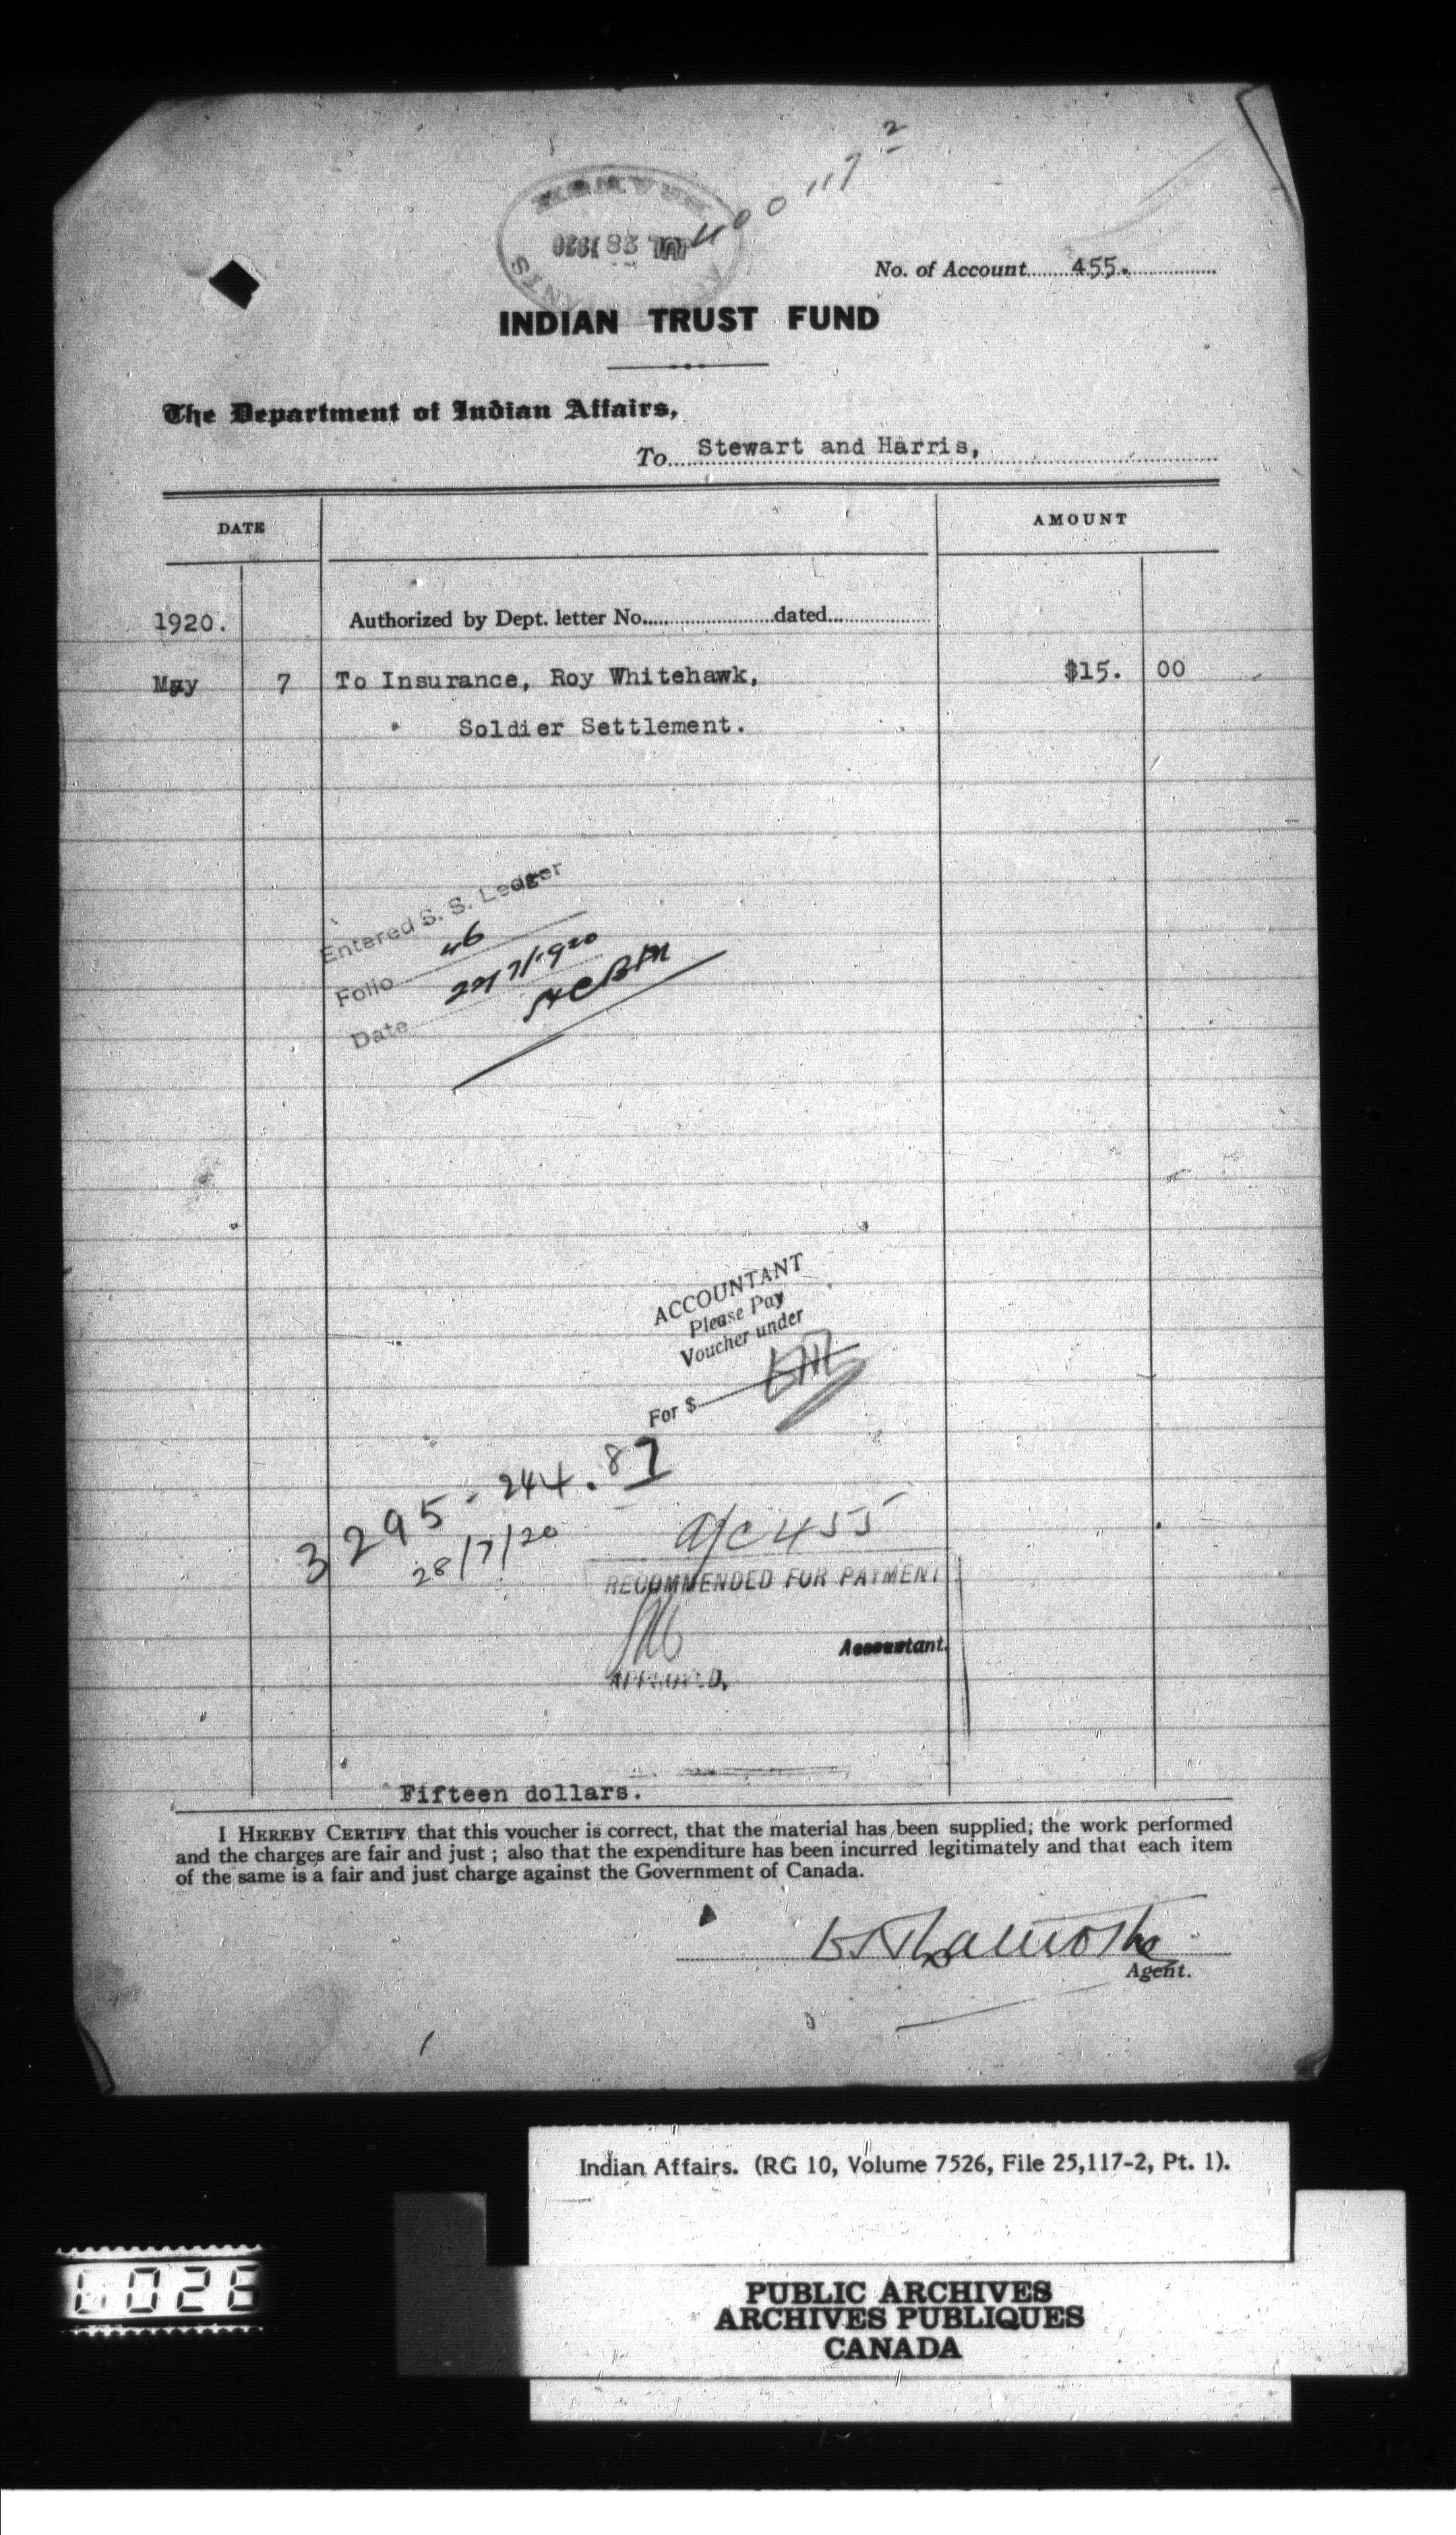 JUL 28 1920
No. of Account 455.
INDIAN TRUST FUND
The Department of Indian Affairs,
To Stewart and Harris,
DATE
AMOUNT
1920.
Authorized by Dept. letter No. dated
May 7 To Insurance, Roy Whitehawk, $15. 00
" Soldier Settlement.
Entered S. S. Ledger
Folio 46
Date
ACCOUNTANT
Please Pay
Voucher under
For $
3295 - 244.87
28/7/20
a/c 455
RECOMMENDED FOR PAYMENT
Accountant.
APPROVED,
Fifteen dollars.
I HEREBY CERTIFY that this voucher is correct, that the material has been supplied; the work performed
and the charges are fair and just ; also that the expenditure has been incurred legitimately and that each item
of the same is a fair and just charge against the Government of Canada.
Agent.
Indian Affairs. (RG 10, Volume 7526, File 25,117-2, Pt. 1).
PUBLIC ARCHIVES
ARCHIVES PUBLIQUES
CANADA